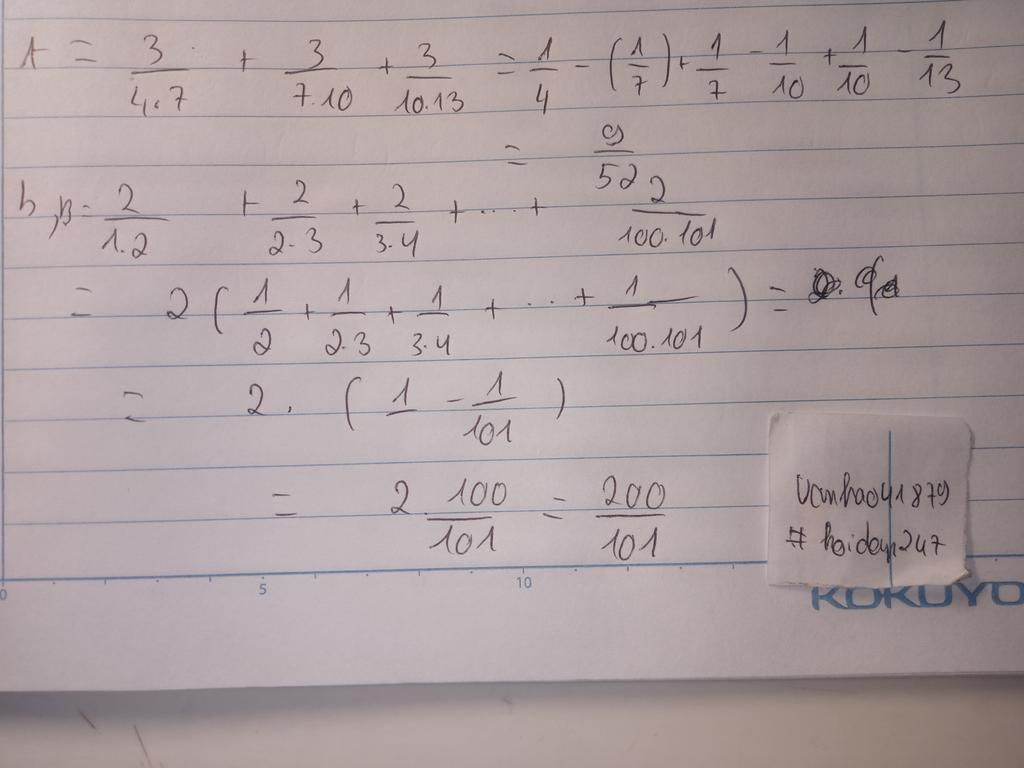 A = 3/4.7 + 3/7.10 + 3/10.13 = 1/4 - (1/7) + 1/7 - 1/10 + 1/10 - 1/13
= 9/52
b, B = 2/1.2 + 2/2.3 + 2/3.4 + ... + 2/100.101
= 2 ( 1/2 + 1/2.3 + 1/3.4 + ... + 1/100.101 ) =
= 2 . ( 1 - 1/101 )
= 2 . 100/101 = 200/101
vanhao41879
# hoidap247
0 5 10
KOKUYO